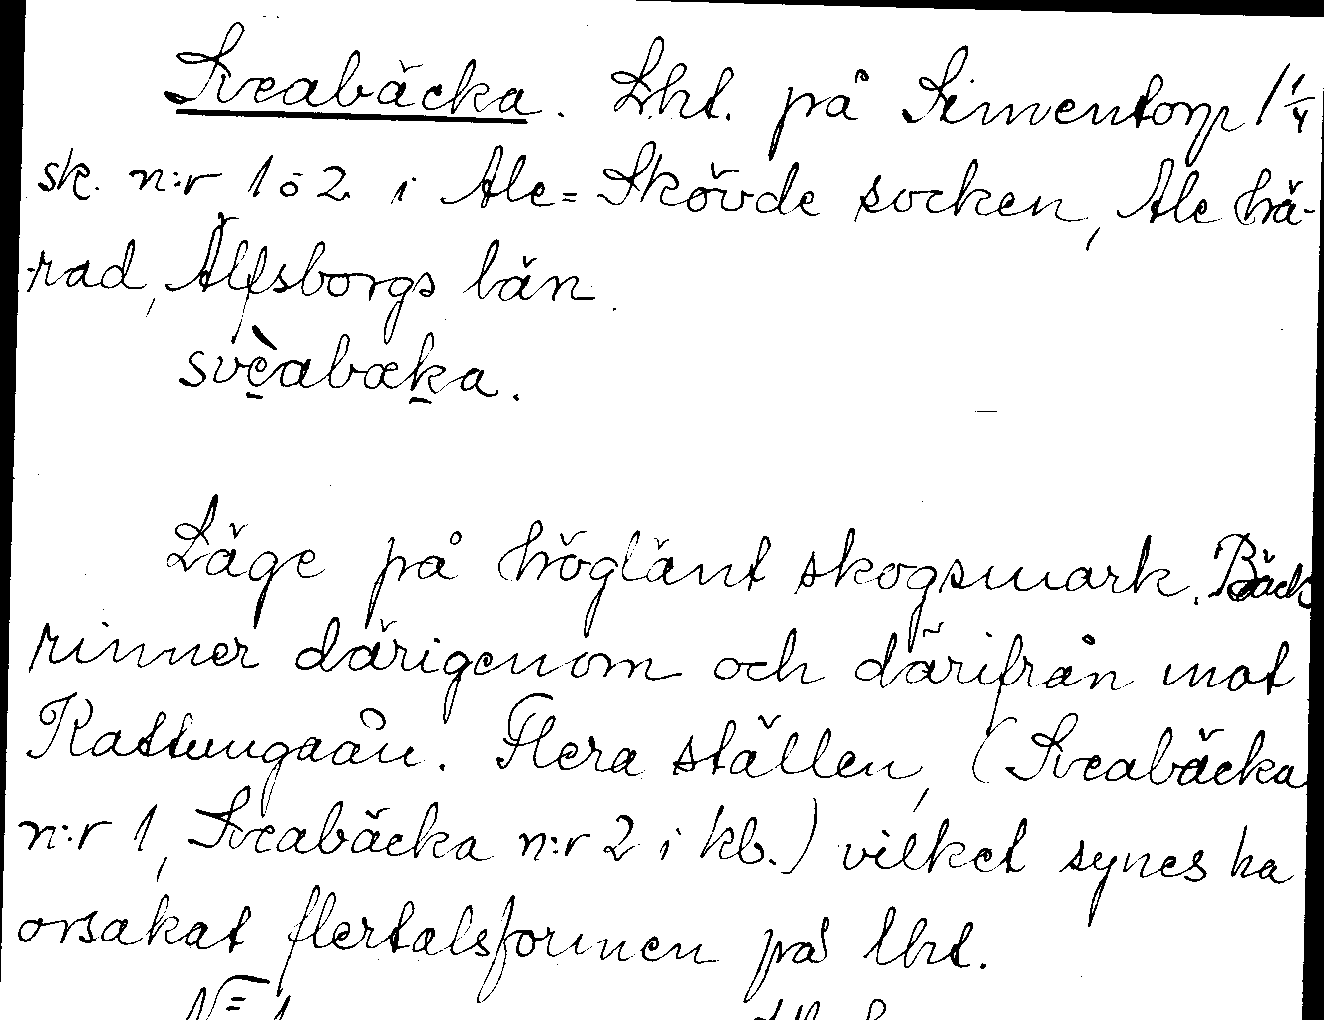 Sveabäcka. Lht. på Simentorp 1 1/4
sk. n:r 1 o 2 i Ale=Skövde socken, Ale hä-
rad, Älfsborgs län.
svèabæka.
Läge på höglänt skogsmark. Bäck
rinner därigenom och därifrån mot
Kattungaån. Flera ställen, (Sveabäcka
n:r 1, Sveabäcka n:r 2 i kb.) vilket synes ha
orsakat flertalsformen på lht.